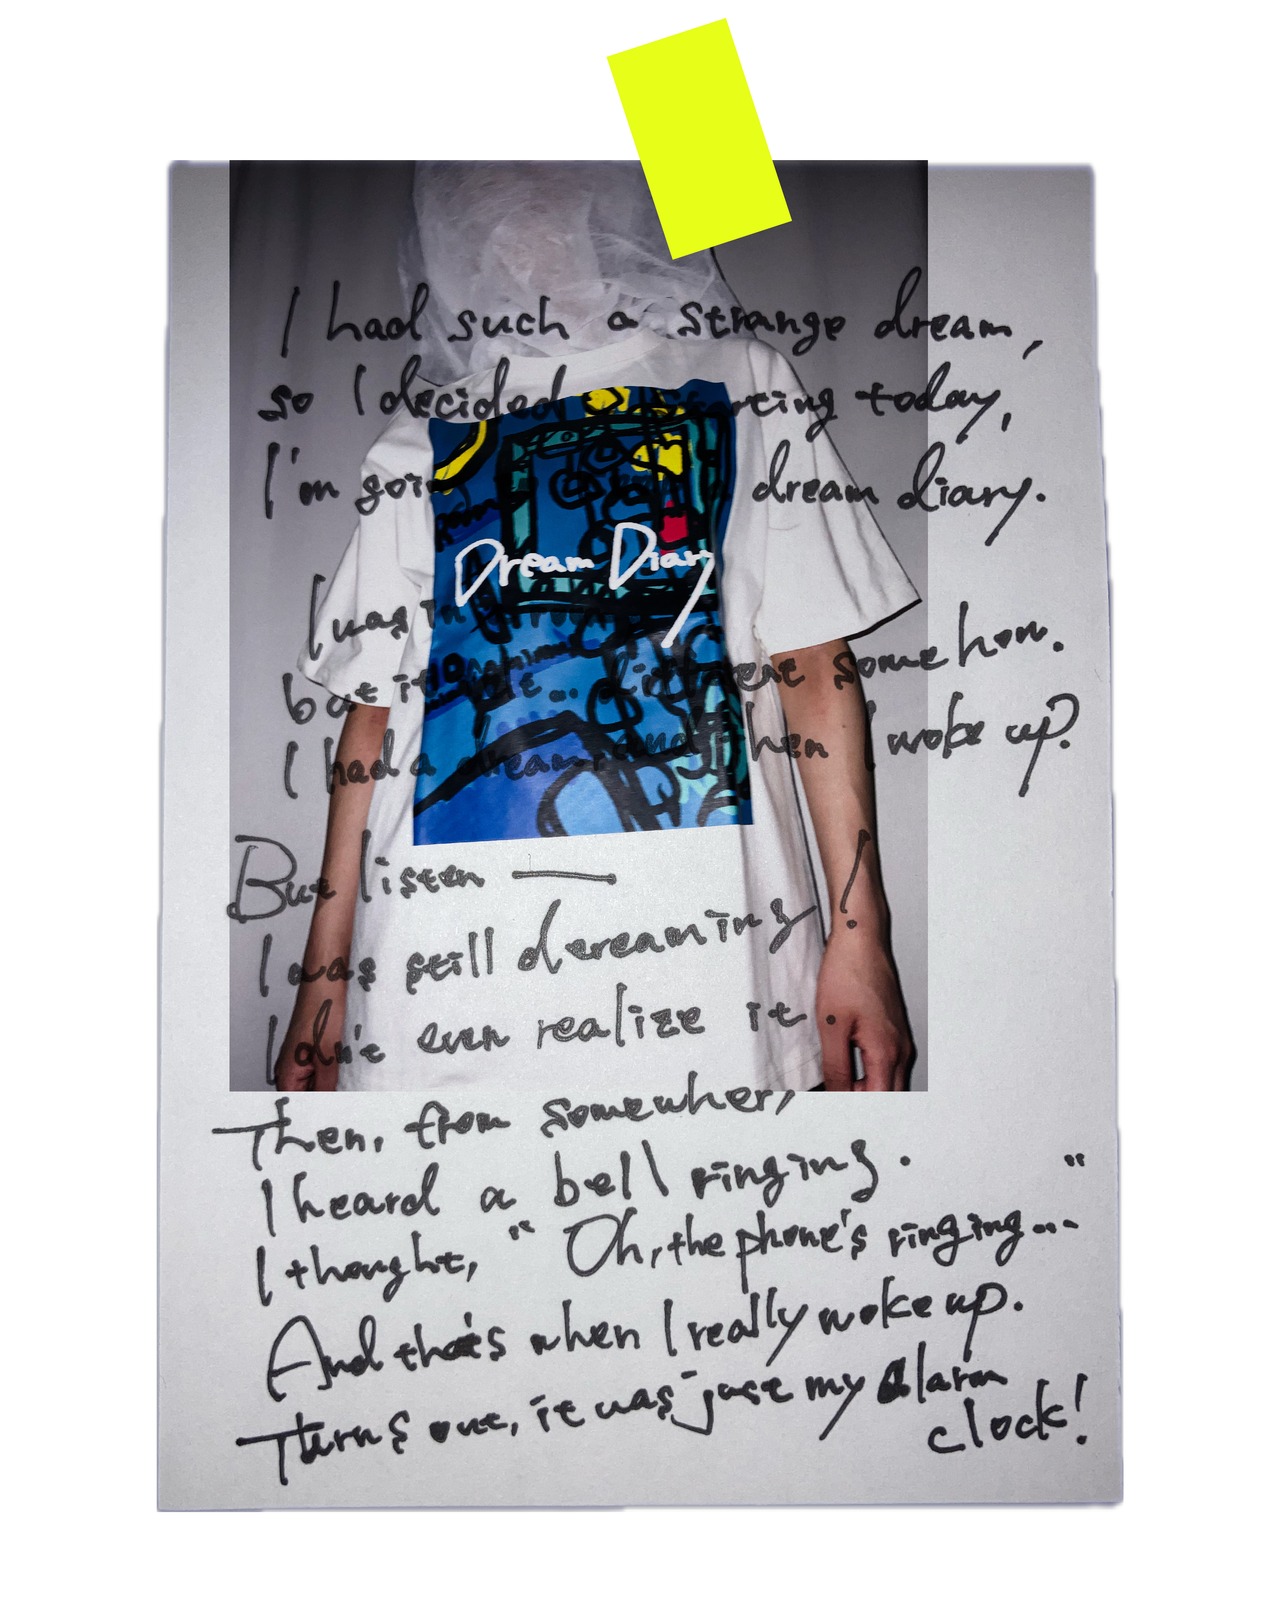 I had such a strange dream,
so I decided starting today,
I'm goin dream diary.
Dream Diary
I was in
but it different somehow.
I had a dream, and then I woke up?
But listen —
I was still dereaming!
I din't even realize it.
Then, from somewher,
I heard a bell ringing.
I thought, " Oh, the phone's ringing... "
And that's when I really woke up.
Turns out, it was just my alarm
clock!